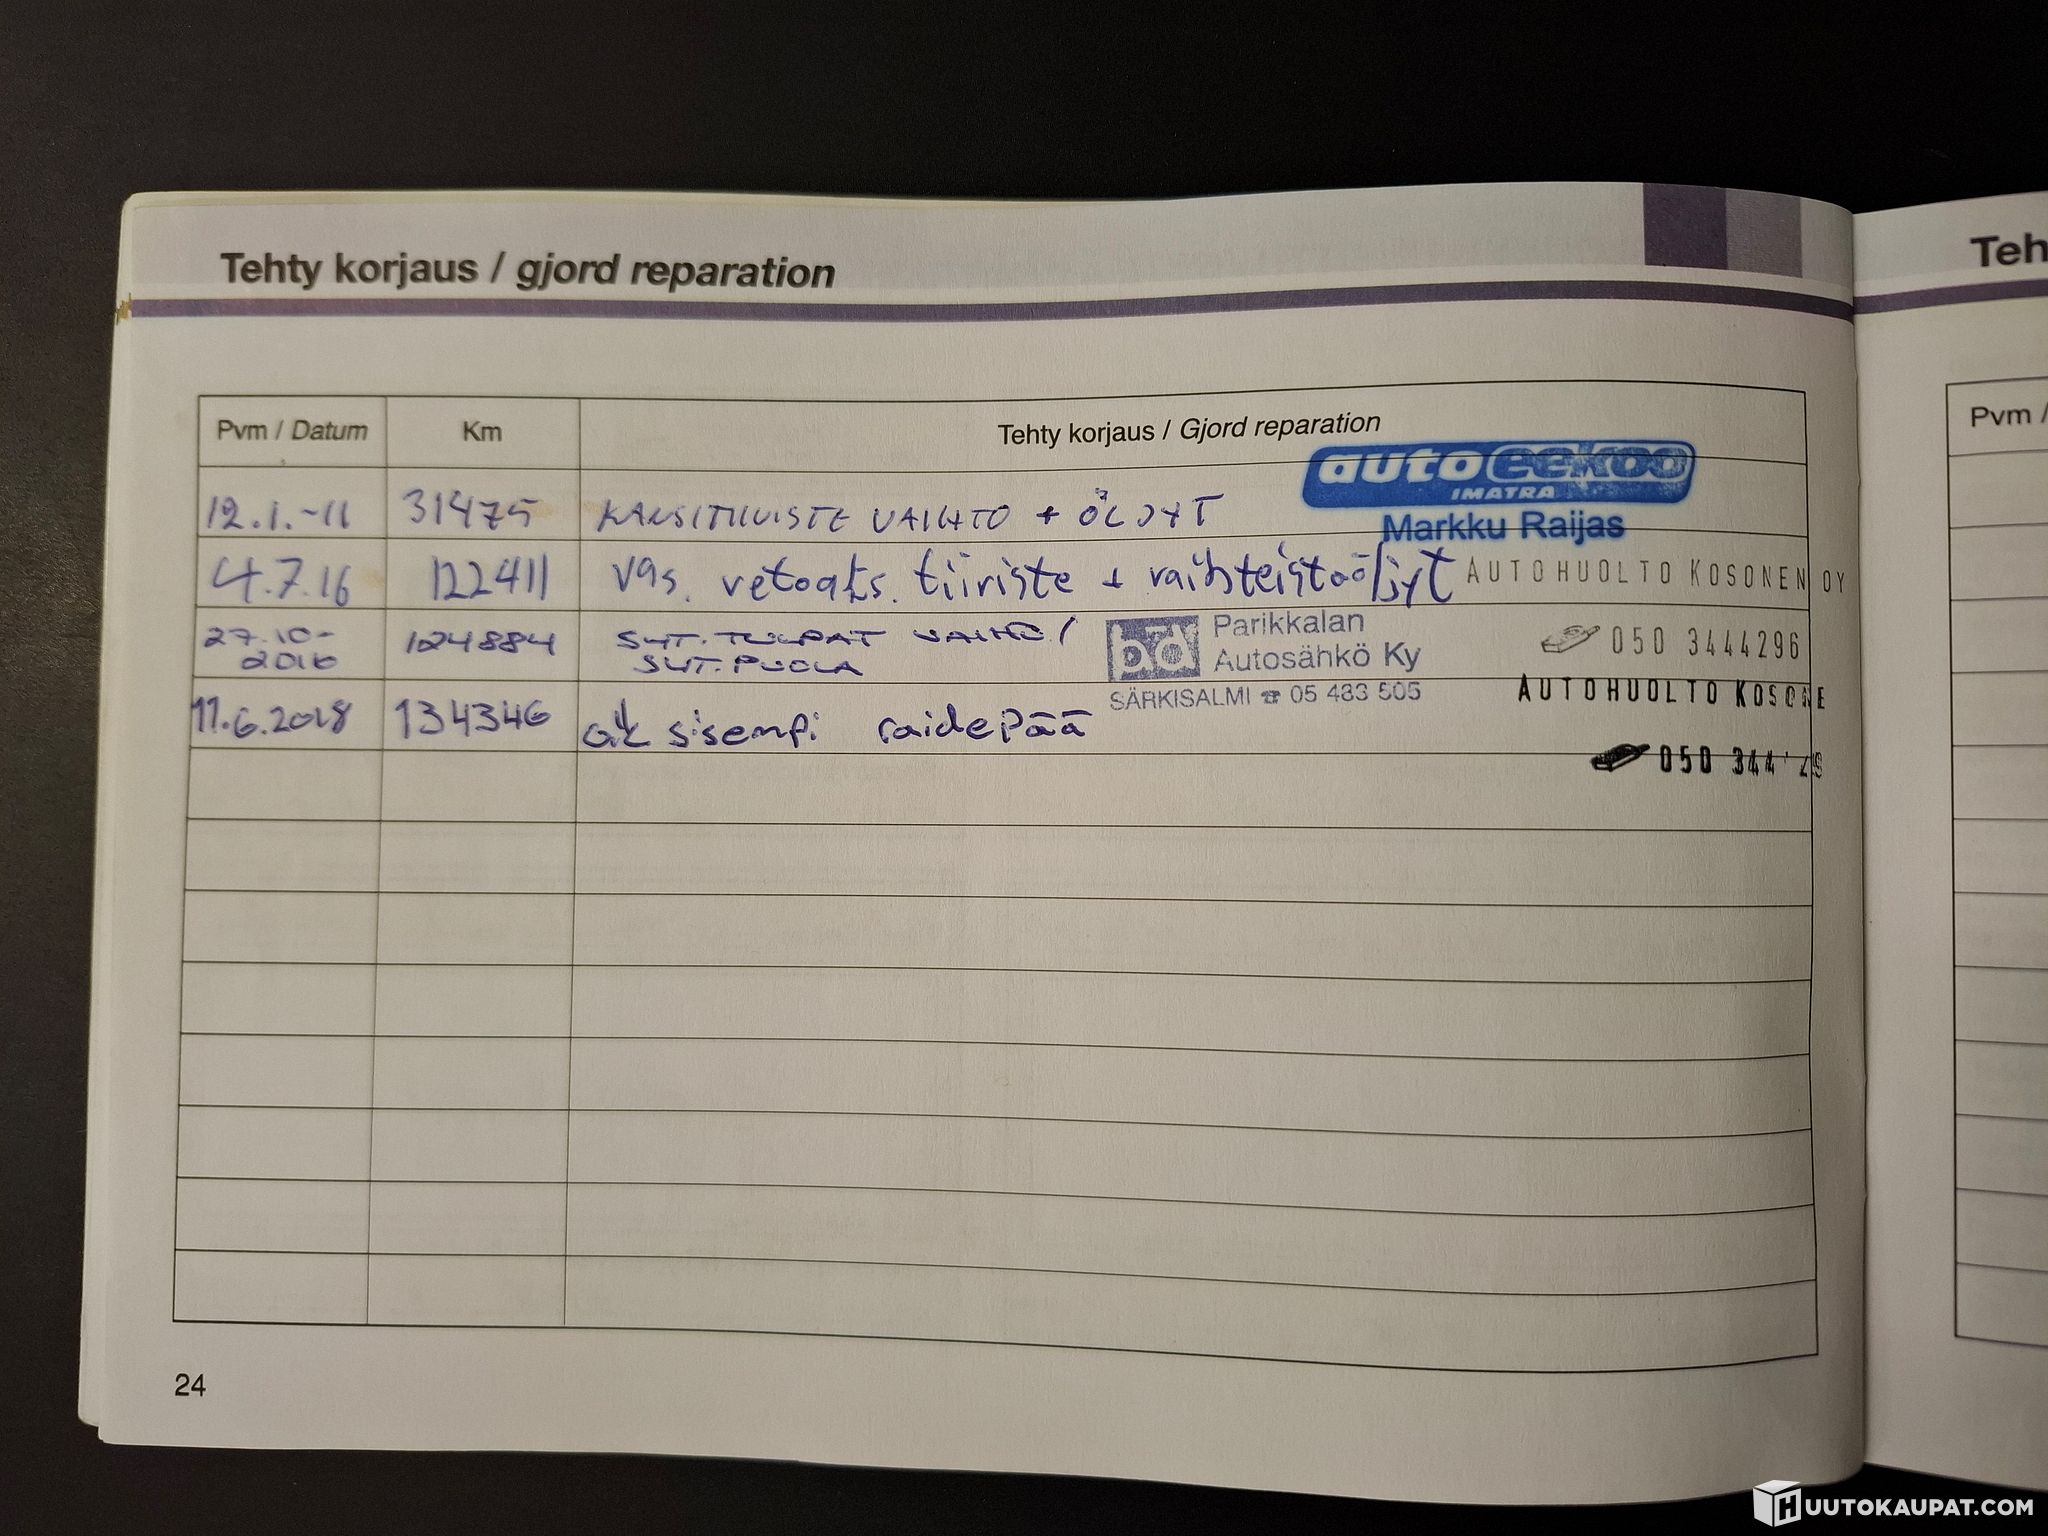 Tehty korjaus / gjord reparation
Teh
Pvm / Datum Km Tehty korjaus / Gjord reparation
Pvm /
auto eekoo
IMATRA
Markku Raijas
12.1.-11 31475 KANSITIIVISTE VAIHTO + ÖLJYT
4.7.16 122411 vas. vetoaks. tiiviste + vaihteistoöljyt
AUTOHUOLTO KOSONEN OY
050 3444296
27.10-
2016 124884 SYT. TULPAT VAIHD/
SYT. PUOLA
bd Parikkalan
Autosähkö Ky
SÄRKISALMI ☎ 05 483 505
AUTOHUOLTO KOSONE
11.6.2018 134346 sisempi raidepää
050 344
24
HUUTOKAUPAT.COM